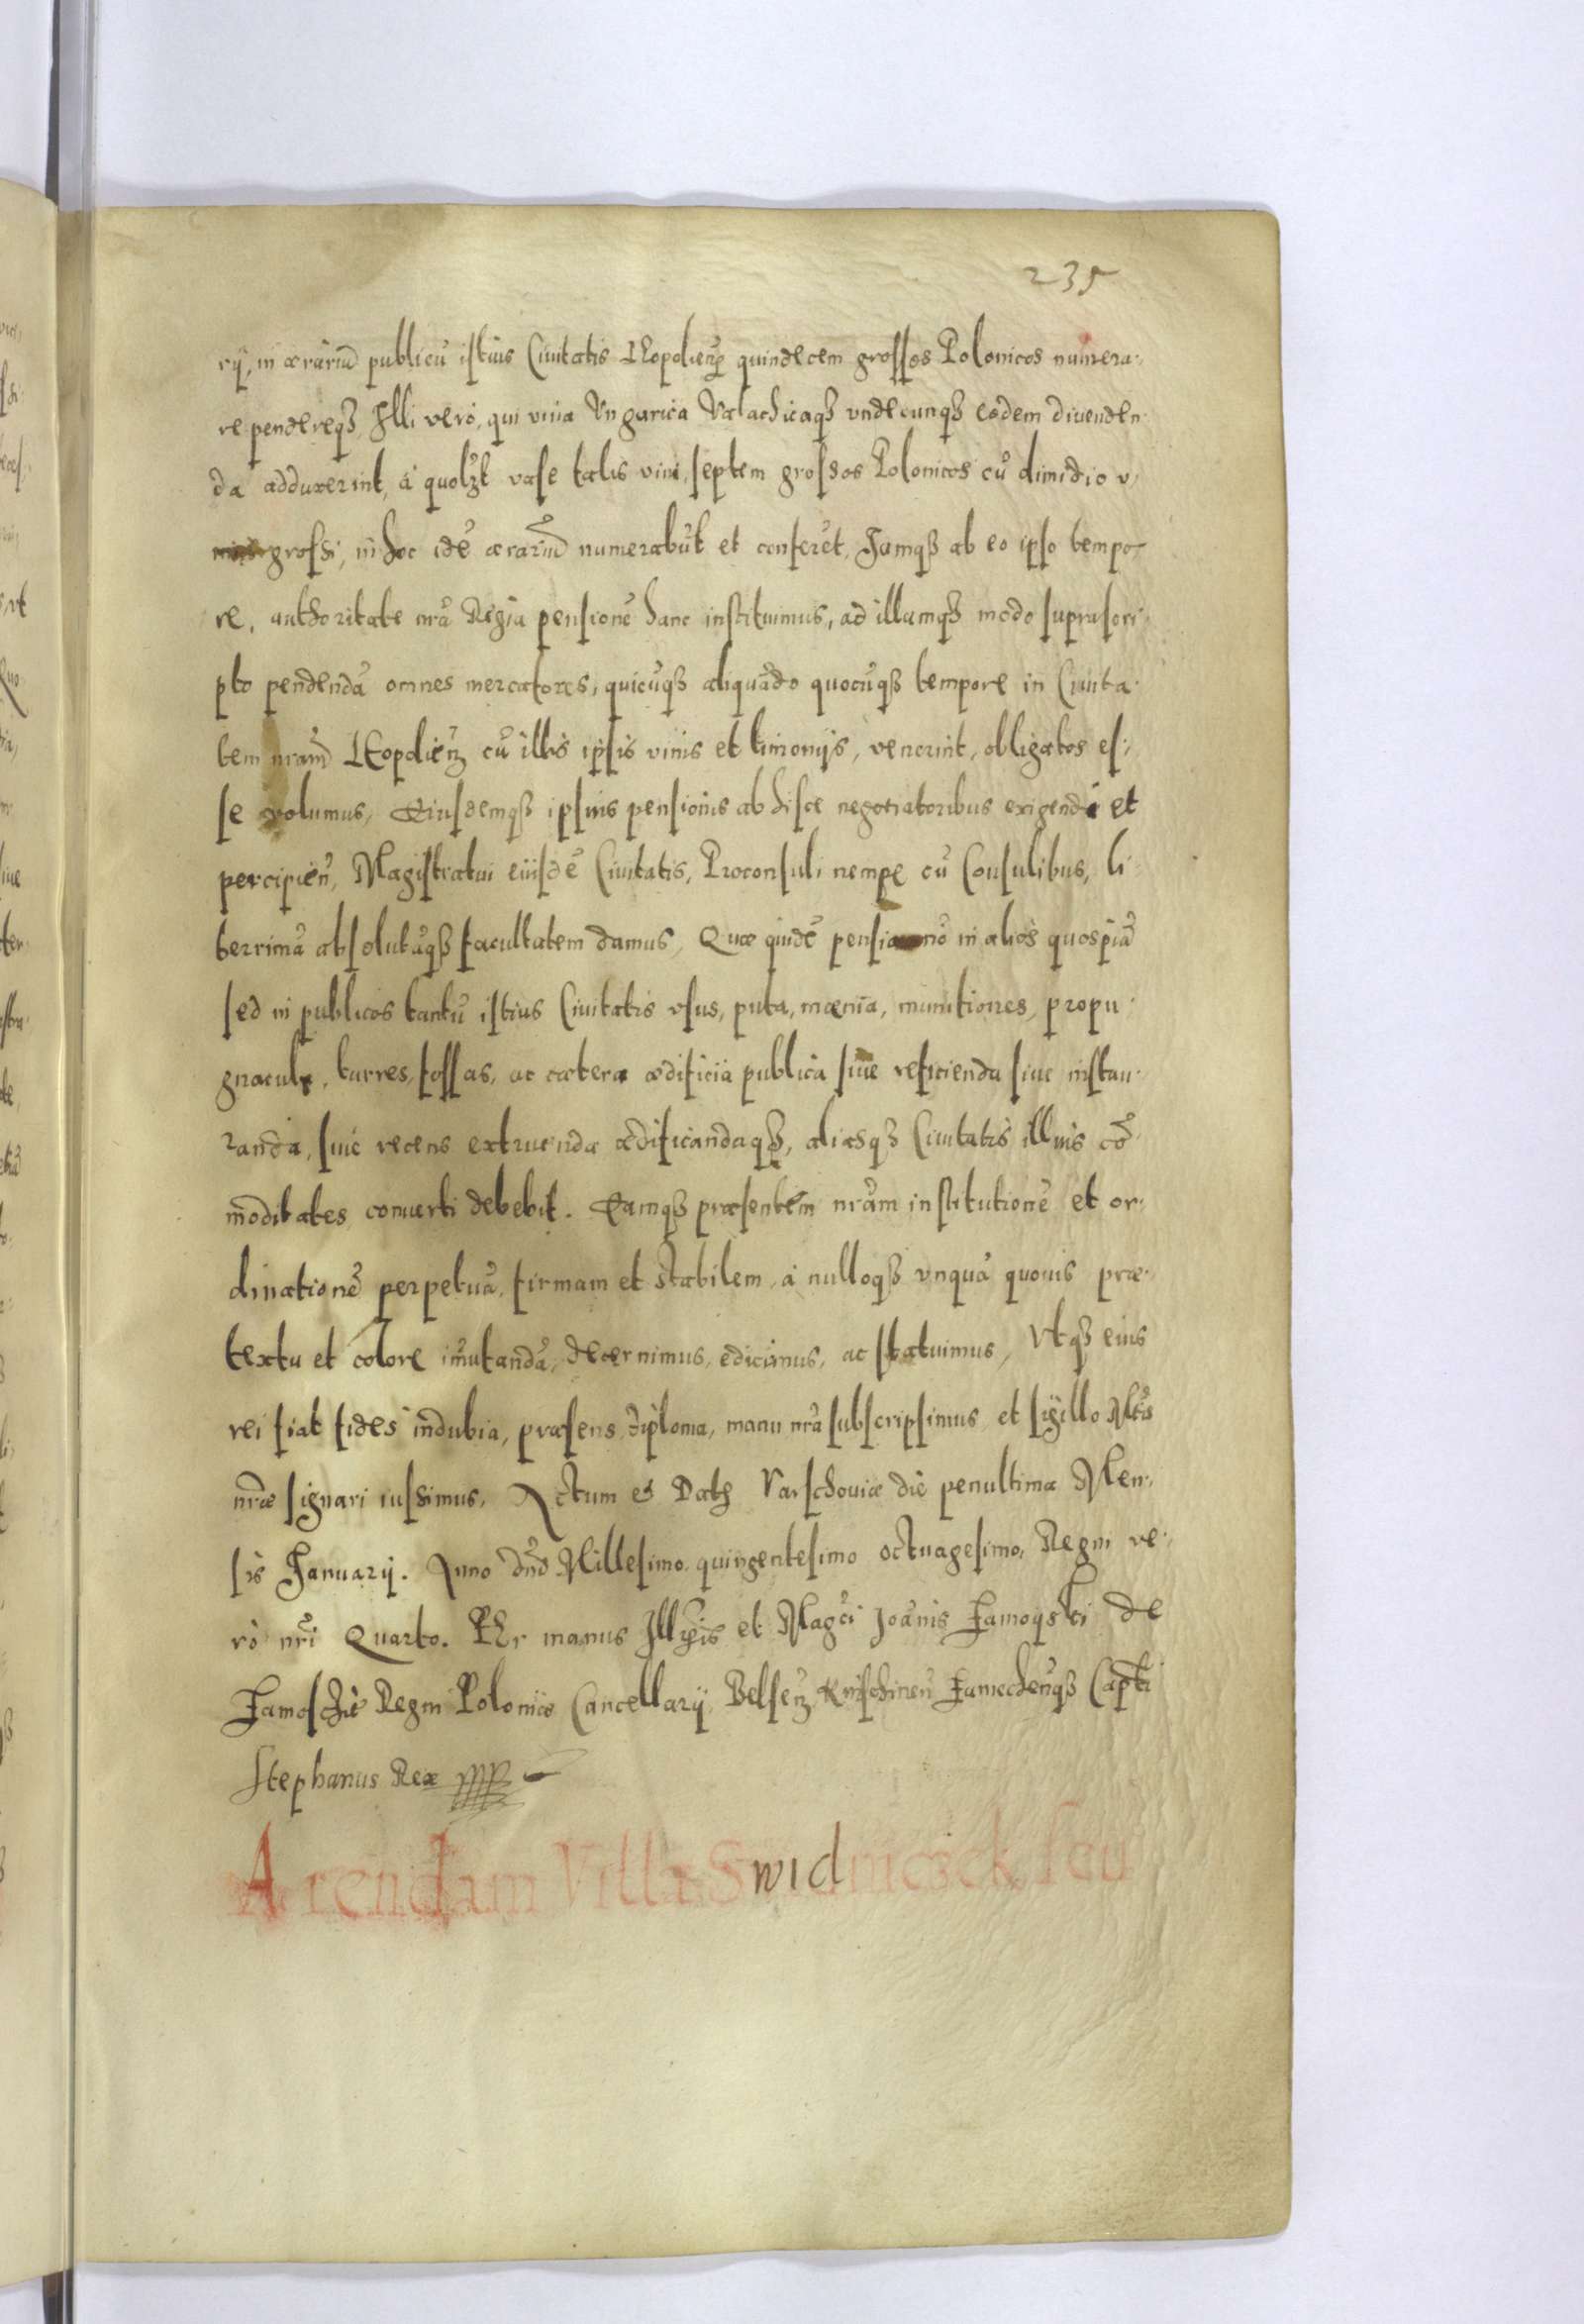 235
rij, in ærariũ publicũ istius Ciuitatis LEopolieñ quindecem grossos Polonicos numera-
re pendereqȝ Illi verò, qui vina Vngarica Valachicaqȝ vndecunqȝ eodem diuenden-
da adduxerint, à quolȝt vase talis vini, septem grossos Polonicos cũ dimidio v-
grossi, in hoc idẽ ærariũ numerabũt et conferẽt, Iamqȝ ab eo ipso tempo-
re, authoritate nr̃a Regia pensionẽ hanc instituimus, ad illamqȝ modo suprascri-
pto pendendã omnes mercatores, quicũqȝ aliquãdo quocũqȝ tempore in Ciuita-
tem nram̃ LEopolieñ cũ illis ipsis vinis et limonijs, venerint, obligatos es-
se volumus, Eiusdemqȝ ipsius pensionis ab hisce negotiatoribus exigendi et
percipieñ, Magistratui eiusdẽ Ciuitatis, Proconsuli nempe cũ Consulibus, li-
berrimã absolutãqȝ facultatem damus, Quæ quidẽ pensio nõ in alios quospiã
sed in publicos tantũ istius Ciuitatis vsus, puta, mænia, munitiones, propu-
gnacula, turres, fossas, ac cætera ædificia publica siue reficienda siue instau-
randa, siue recens extruenda ædificandaqȝ, aliasqȝ Ciuitatis illius cõ-
moditates conuerti debebit. Eamqȝ præsentem nrãm institutionẽ et or-
dinationẽ perpetuã, firmam et stabilem, à nulloqȝ vnquã quouis præ-
textu et colore im̃utandã, decernimus, edicimus, ac statuimus, Vtqȝ eius
rei fiat fides indubia, præsens diploma, manu nrã subscripsimus et sigillo Mtis
nræ signari iussimus, Actum et Dat Varschouiæ die penultima Men-
sis Ianuarij. Anno dnĩ Millesimo quingentesimo octuagesimo, Regni ve-
rò nrĩ Quarto. PEr manus Illris et Magci Joãnis Zamoyski de
Zamoschie Regni Poloniæ Cancellarij Belseñ Knischineñ Zamecheñqȝ Capti
Stephanus Rex
Arendam Villæ Swidniczek seu